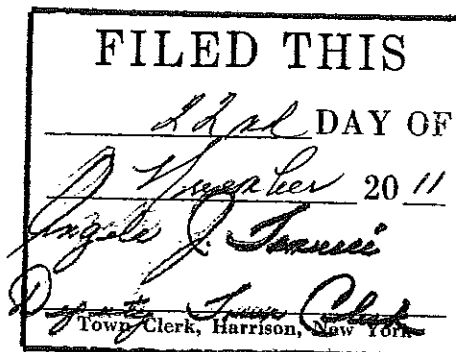 FILED THIS
22nd DAY OF
November 20 11
Angelo J.
Deputy Town Clerk
Town Clerk, Harrison, New York